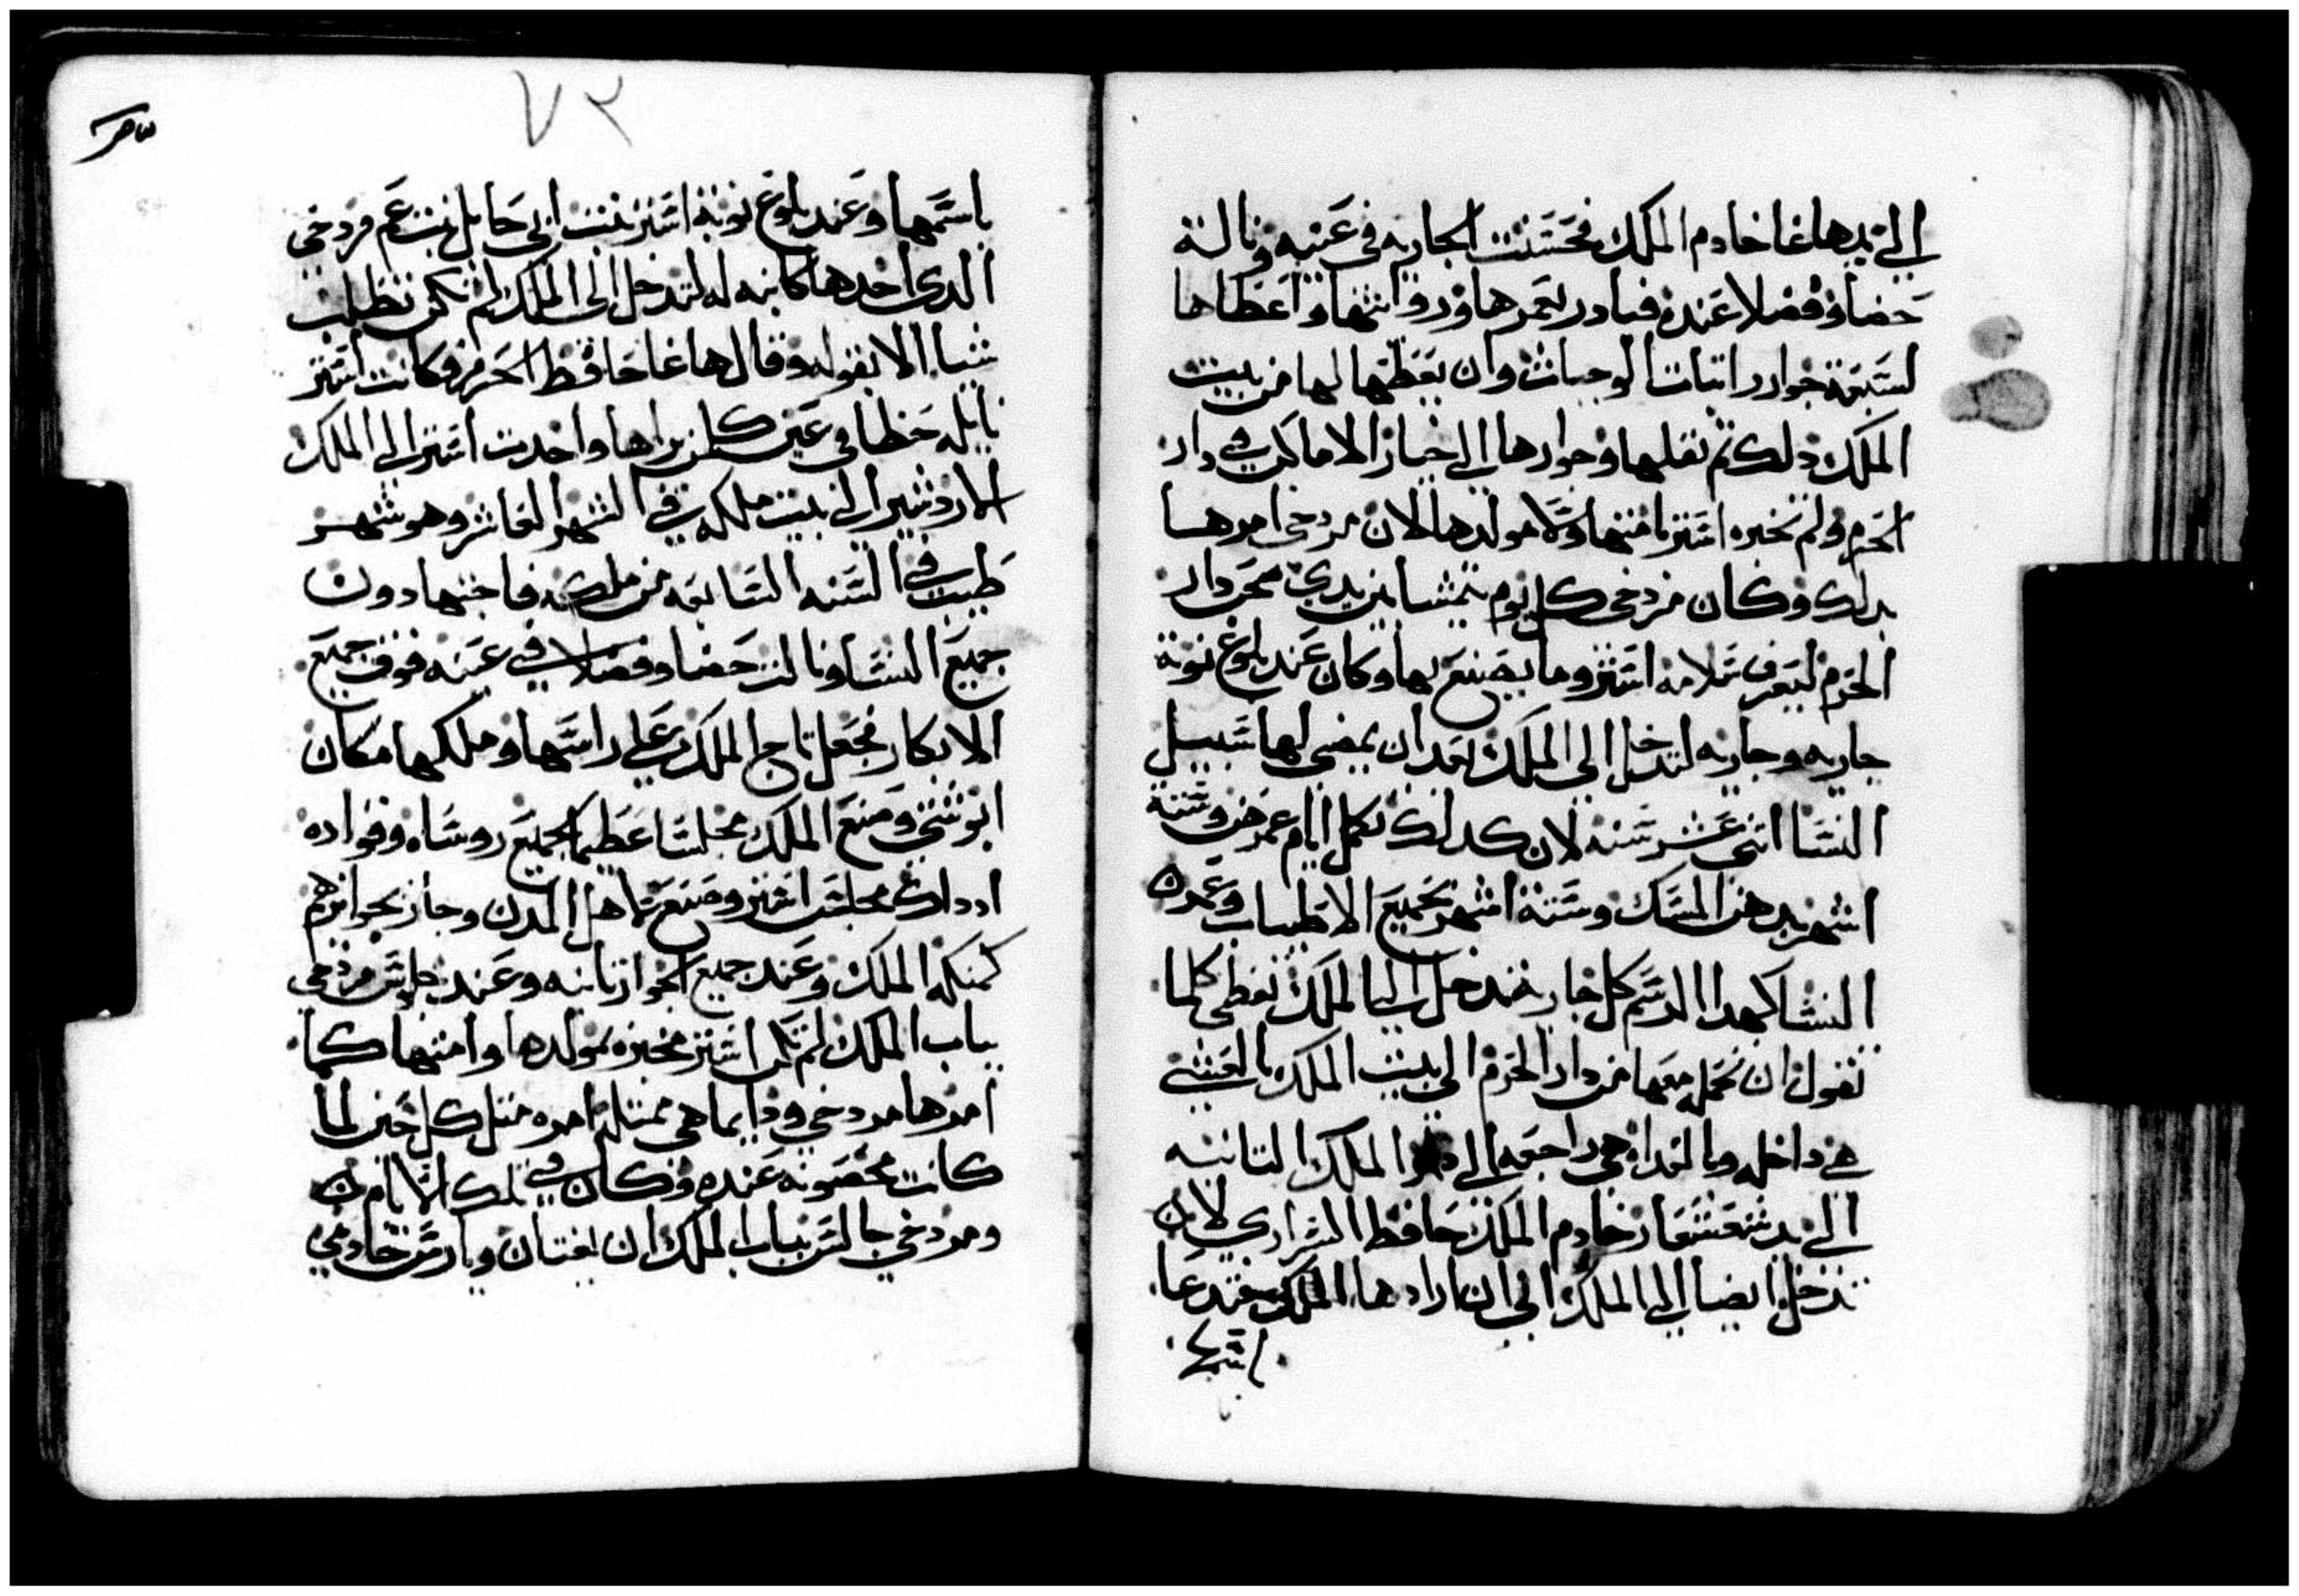 الى يد هاغا خادم الملك فحسنت الجاريه في عينيه ونالت
حضا وفضلا عنده فبادر بغمرها ورواتبها واعطاها
لسبعة جوار راتبات الوجبات وان يعطيها لها من بيت
الملك ذلك ثم نقلها وجوارها الى خيار الاماكن في دار
الحرم ولم تخبره استر بامتها ولا مولدها لان مردخى امرها
بدلك وكان مردخى كل يوم يتمشا بين يدي صحن دار
الحرم ليعرف سلامة استر وما يصنع بها وكان عند بلوغ نوبة
جاريه وجاريه لتدخل الى الملك بعد ان يمضي لها سبيل
النسا اثنى عشر شهر لان كدلك تكمل ايام غمرهن وستة
اشهر بدهن المسك وستة اشهر بجميع الاطياب وغمرة
النسا كهدا الرسم كل جاريه تدخل الى الملك تعطى كلما
تقول ان تحمل معها من دار الحرم الى بيت الملك بالعشي
هي داخله وبالغداه هي راجعه الى دار الملك الثانيه
الى يد شعشغاز خادم الملك حافظ السراري لا
تدخل ايضا الى الملك الى ان ارادها الملك فتدعا
باسمها
٧٢
باسمها وعند بلوغ نوبة استر بنت ابي حايل بنت عم مردخى
الدي اخدها كابنه له لتدخل الى الملك لم تكن تطلب
شيا الا بقوله وقال هاغا حافظ الحرم وكانت استر
نايله حظا في عين كل من يراها واخدت استر الى الملك
الاردشير الى بيت ملكه في الشهر العاشر وهو شهر
طيبت في السنه السابعه من ملكه فاحبها دون
جميع النسا ونالت حضا وفضلا في عينه فوق جميع
الابكار فجعل تاج الملك على راسها وملكها مكان
ابوشتي وصنع الملك مجلسا عظيما لجميع روساه وقواده
اددلك مجلس استر وصنع لاهل المدن وجاز بجوايزهم
كمنكة الملك وعند جميع الجوار ثانيه وعند جلس مردخى
بباب الملك لم تكن استر مخبره بمولدها وامتها كما
امرها مردخي ودايما هي ممتثلة امره مثل كل حين لما
كانت محضونه عنده وكان في تلك الايام
ومردخي جالس بباب الملك ان يغتان وبارش خادمي